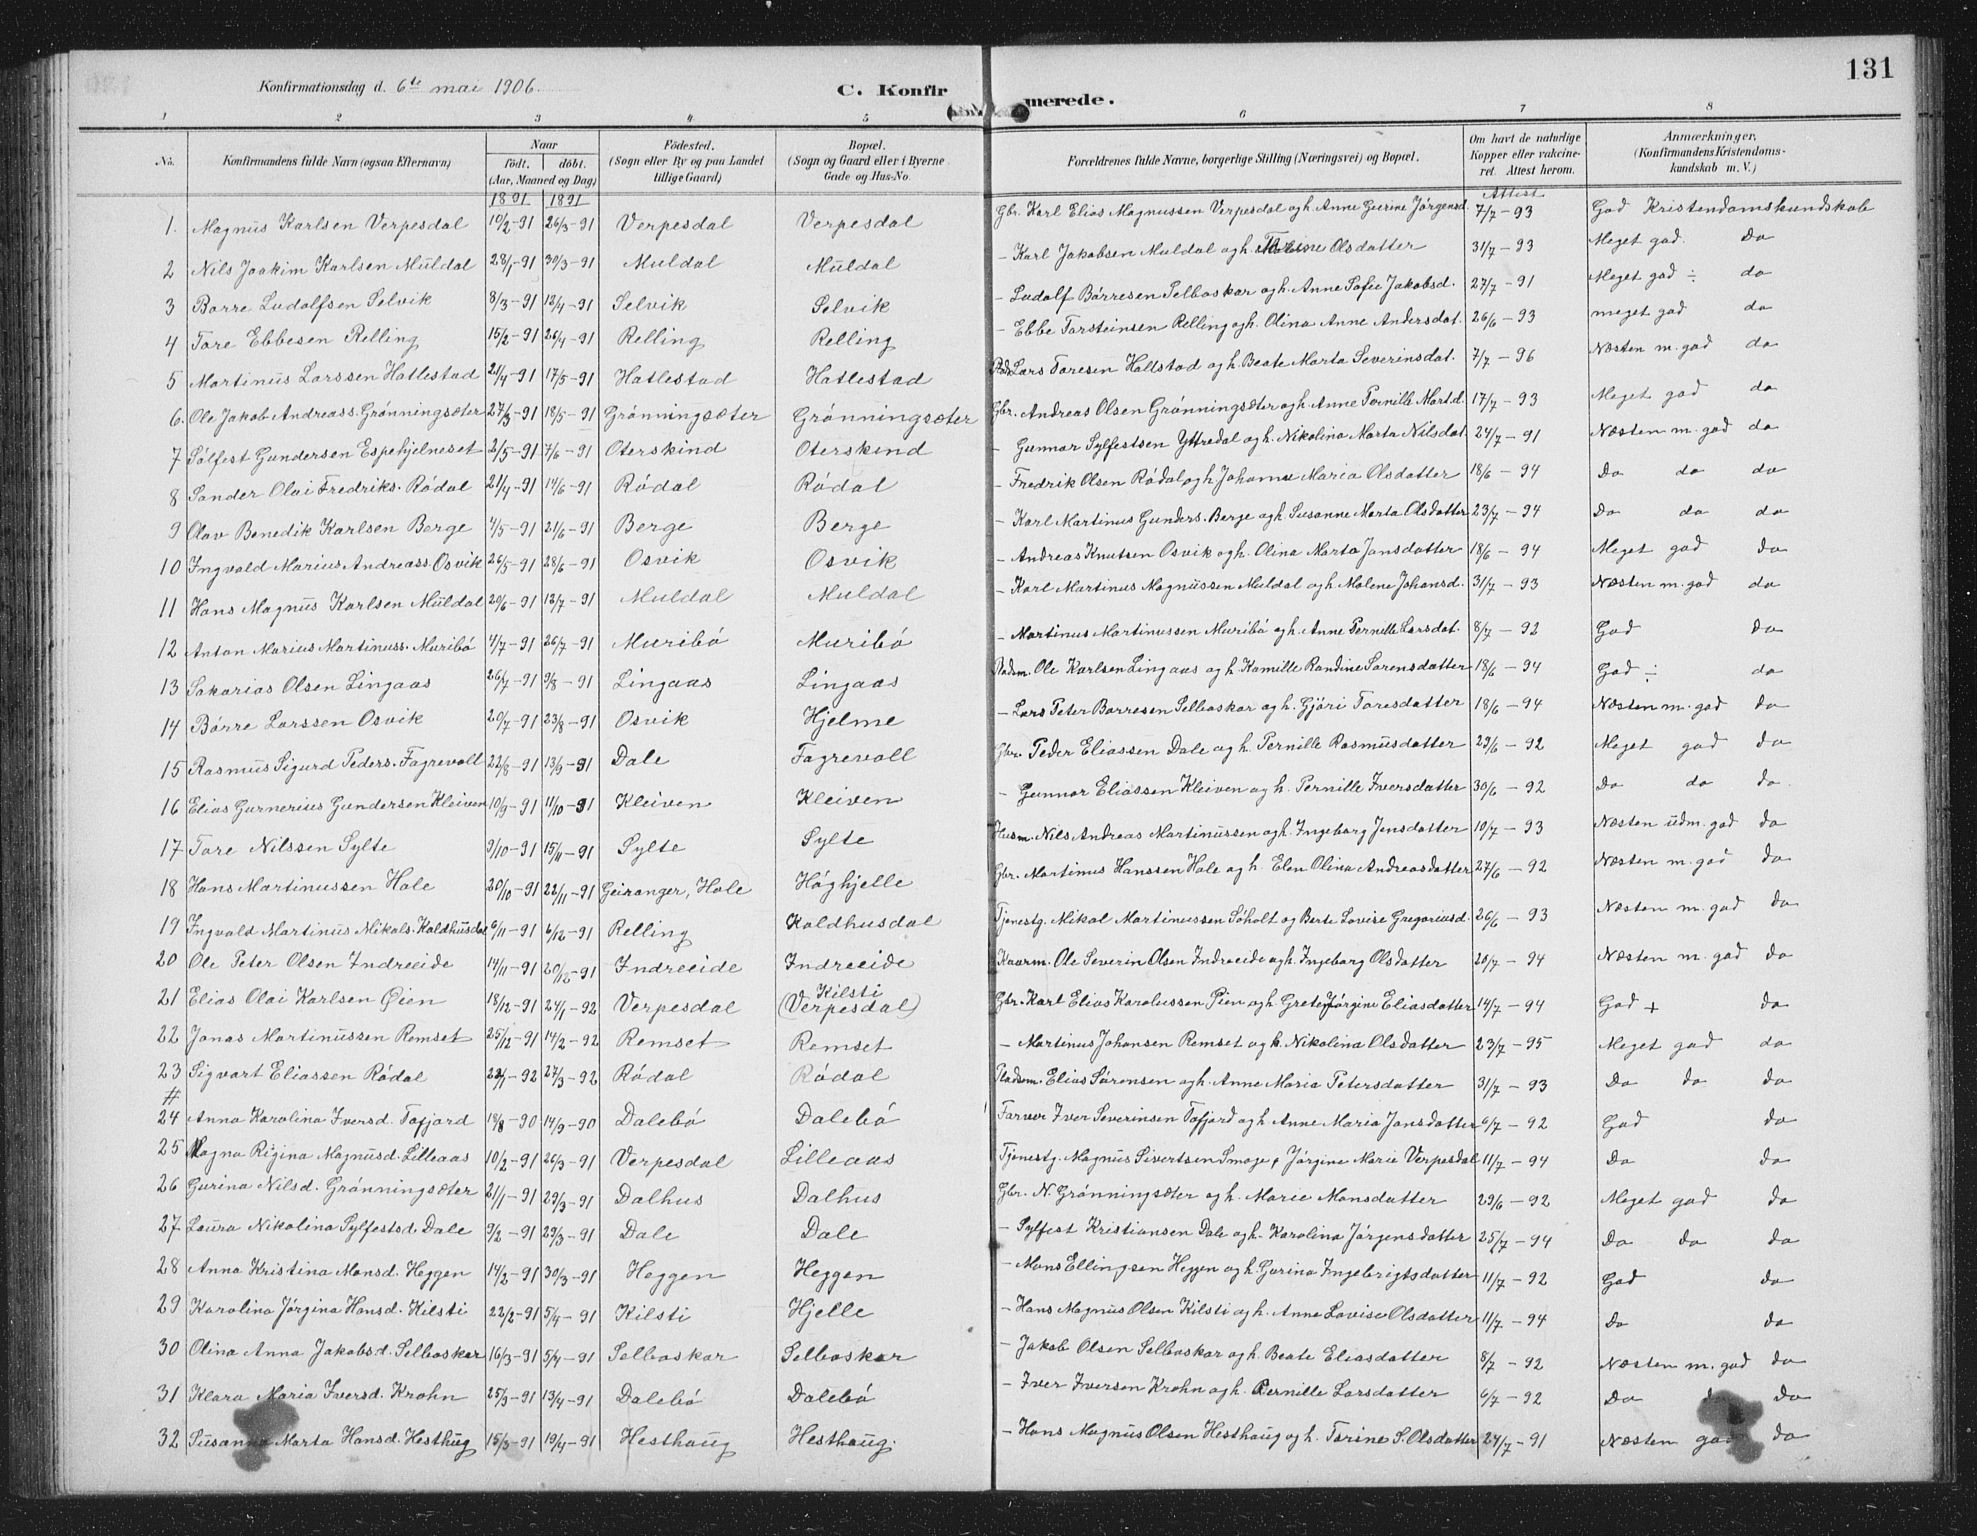 131
Konfirmationsdag d. 6te mai 1906.
C. Konfirmerede.
1 2 3 4 5 6 7 8
No. Konfirmandens fulde Navn (ogsaa Efternavn) Naar født. døbt. (Aar, Maaned og Dag) Fødested. (Sogn eller By og paa Landet tillige Gaard) Bopæl. (Sogn og Gaard eller i Byerne Gade og Hus-No. Forældrenes fulde Navne, borgerlige Stilling (Næringsvei) og Bopæl. Om havt de naturlige Kopper eller vakcineret. Attest herom. Anmærkninger. (Konfirmandens Kristendomskundskab m. V.)
1891 1891 Attest
1. Magnus Karlsen Verpesdal 10/2-91 26/3-91 Verpesdal Verpesdal Gbr. Karl Elias Magnussen Verpesdal og h. Anne Gurine Jørgensd. 7/7-93 God Kristendomskundskab
2 Nils Joakim Karlsen Muldal 28/1-91 30/3-91 Muldal Muldal - Karl Jakobsen Muldal og h. Olsdatter 31/7-93 Meget god. Do
3 Børre Ludolfsen Selvik 8/3-91 12/4-91 Selvik Selvik - Ludolf Børresen Selboskar og h. Anne Sofie Jakobsd. 27/7-91 Meget god ÷ do
4 Tore Ebbesen Relling 15/2-91 26/4-91 Relling Relling - Ebbe Torsteinsen Relling og h. Olina Anne Andersdat. 26/6-93 meget god do
5 Martinus Larssen Hatlestad 21/4-91 17/5-91 Hatlestad Hatlestad Lars Toresen Hallstad og h. Beate Marta Severinsdat. 7/7-96 Næsten m. god do
6. Ole Jakob Andreass. Grønningsæter 27/3-91 18/5-91 Grønningsæter Grønningsæter Gbr. Andreas Olsen Grønningsæter og h. Anne Pernille Mort.d. 17/7-93 Meget god do
7 Sølfest Gundersen Espehjelneset 2/5-91 7/6-91 Oterskind Oterskind - Gunnar Sylfestsen Yttredal og h. Nikolina Marta Nilsdat. 24/7-91 Næsten m. god do
8 Sander Olai Fredriks. Rødal 21/4-91 14/6-91 Rødal Rødal - Fredrik Olsen Rødal og h. Johanne Maria Olsdatter 18/6-94 Do do do
9 Olav Benedik Karlsen Berge 4/5-91 21/6-91 Berge Berge - Karl Martinus Gunders. Berge og h. Susanne Marta Olsdatter 23/7-94 Do do do
10 Ingvald Marius Andreass. Osvik 26/5-91 28/6-91 Osvik Osvik - Andreas Knutsen Osvik og h. Olina Marta Jonsdatter 18/6-94 Meget god do
11 Hans Magnus Karlsen Muldal 20/6-91 12/7-91 Muldal Muldal - Karl Martinus Magnussen Muldal og h. Malene Johansd. 31/7-93 Næsten m. god do
12 Anton Marius Martinuss. Muribø 4/7-91 26/7-91 Muribø Muribø - Martinus Martinussen Muribø og h. Anne Pernille Larsdat. 8/7-92 God do
13 Sakarias Olsen Lingaas 26/7-91 9/8-91 Lingaas Lingaas Pladsm. Ole Karlsen Lingaas og h. Kamille Randine Sørensdatter 18/6-94 God ÷ do
14 Børre Larssen Osvik 20/7-91 23/8-91 Osvik Hjelme - Lars Peter Børresen Selboskar og h. Gjøri Toresdatter 18/6-94 Næsten m. god do
15 Rasmus Sigurd Peders. Fagrevoll 22/8-91 13/9-91 Dale Fagrevoll Gbr. Peder Eliassen Dale og h. Pernille Rasmusdatter 29/6-92 Meget god do
16 Elias Gurnerius Gundersen Kleiven 10/9-91 11/10-91 Kleiven Kleiven - Gunnar Eliassen Kleiven og h. Pernille Iversdatter 30/6-92 Do do do
17 Tore Nilssen Sylte 9/10-91 15/11-91 Sylte Sylte Husm. Nils Andreas Martinussen og h. Ingeborg Jensdatter 10/7-93 Næsten udm. god do
18 Hans Martinussen Hole 20/10-91 22/11-91 Geiranger, Hole Høghjelle Gbr. Martinus Hanssen Hole og h. Elen Olina Andreasdatter 27/6-92 Næsten m. god do
19 Ingvald Martinus Mikals. Kaldhusdal 6/11-91 6/12-91 Relling Kaldhusdal Tjenestg. Mikal Martinussen Søholt og Berte Lovise Gregoriusd. 26/6-93 Næsten m. god do
20 Ole Peter Olsen Indreeide 14/11-91 20/12-91 Indreeide Indreeide Kaarm. Ole Severin Olsen Indreeide og h. Ingeborg Olsdatter 20/7-94 Næsten m. god do
21 Elias Olai Karlsen Øien 18/12-91 24/1-92 Verpesdal Kilsti (Verpesdal) Gbr. Karl Elias Karolussen Øien og h. Grete Jørgine Eliasdatter 14/7-94 God + do
22 Jonas Martinussen Remset 25/12-91 14/2-92 Remset Remset - Martinus Johansen Remset og h. Nikolina Olsdatter 23/7-95 Meget god do
23 Sigvart Eliassen Rødal 22/1-92 27/3-92 Rødal Rødal Pladsm. Elias Sørensen og h. Anne Maria Petersdatter 31/7-93 Do do do
#
24 Anna Karolina Iversd. Tafjord 18/8-90 14/9-90 Dalebø Dalebø Farver Iver Severinsen Tafjord og h. Anne Maria Jonsdatter 6/7-92 God do
25 Magna Rigina Magnusd. Lilleaas 10/2-91 26/3-91 Verpesdal Lilleaas Tjenestg. Magnus Sivertsen Smoge, Jørgine Marie Verpesdal 11/7-94 Do do
26 Gurina Nilsd. Grønningsæter 21/1-91 29/3-91 Dalhus Dalhus Gbr. N. Grønningsæter og h. Marie Monsdatter 29/6-92 Meget god do
27 Laura Nikolina Sylfestsd. Dale 9/2-91 29/3-91 Dale Dale - Sylfest Kristiansen Dale og h. Karolina Jørgensdatter 25/7-94 Do do do
28 Anna Kristina Monsd. Heggen 14/2-91 30/3-91 Heggen Heggen - Mons Ellingsen Heggen og h. Gurina Ingebrigtsdatter 11/7-92 God do
29 Karolina Jørgina Hansd. Kilsti 22/2-91 5/4-91 Kilsti Hjelle - Hans Magnus Olsen Kilsti og h. Anne Lovise Olsdatter 11/7-94 Do do
30 Olina Anna Jakobsd. Selboskar 16/3-91 5/4-91 Selboskar Selboskar - Jakob Olsen Selboskar og h. Beate Eliasdatter 8/7-92 Næsten m. god do
31 Klara Maria Iversd. Krohn 25/3-91 13/4-91 Dalebø Dalebø - Iver Iversen Krohn og h. Pernille Larsdatter 6/7-92 Do do
32 Susanna Marta Hansd. Hesthug 15/3-91 19/4-91 Hesthaug Hesthaug. - Hans Magnus Olsen Hesthaug og h. Torine S. Olsdatter 24/7-91 Næsten god do